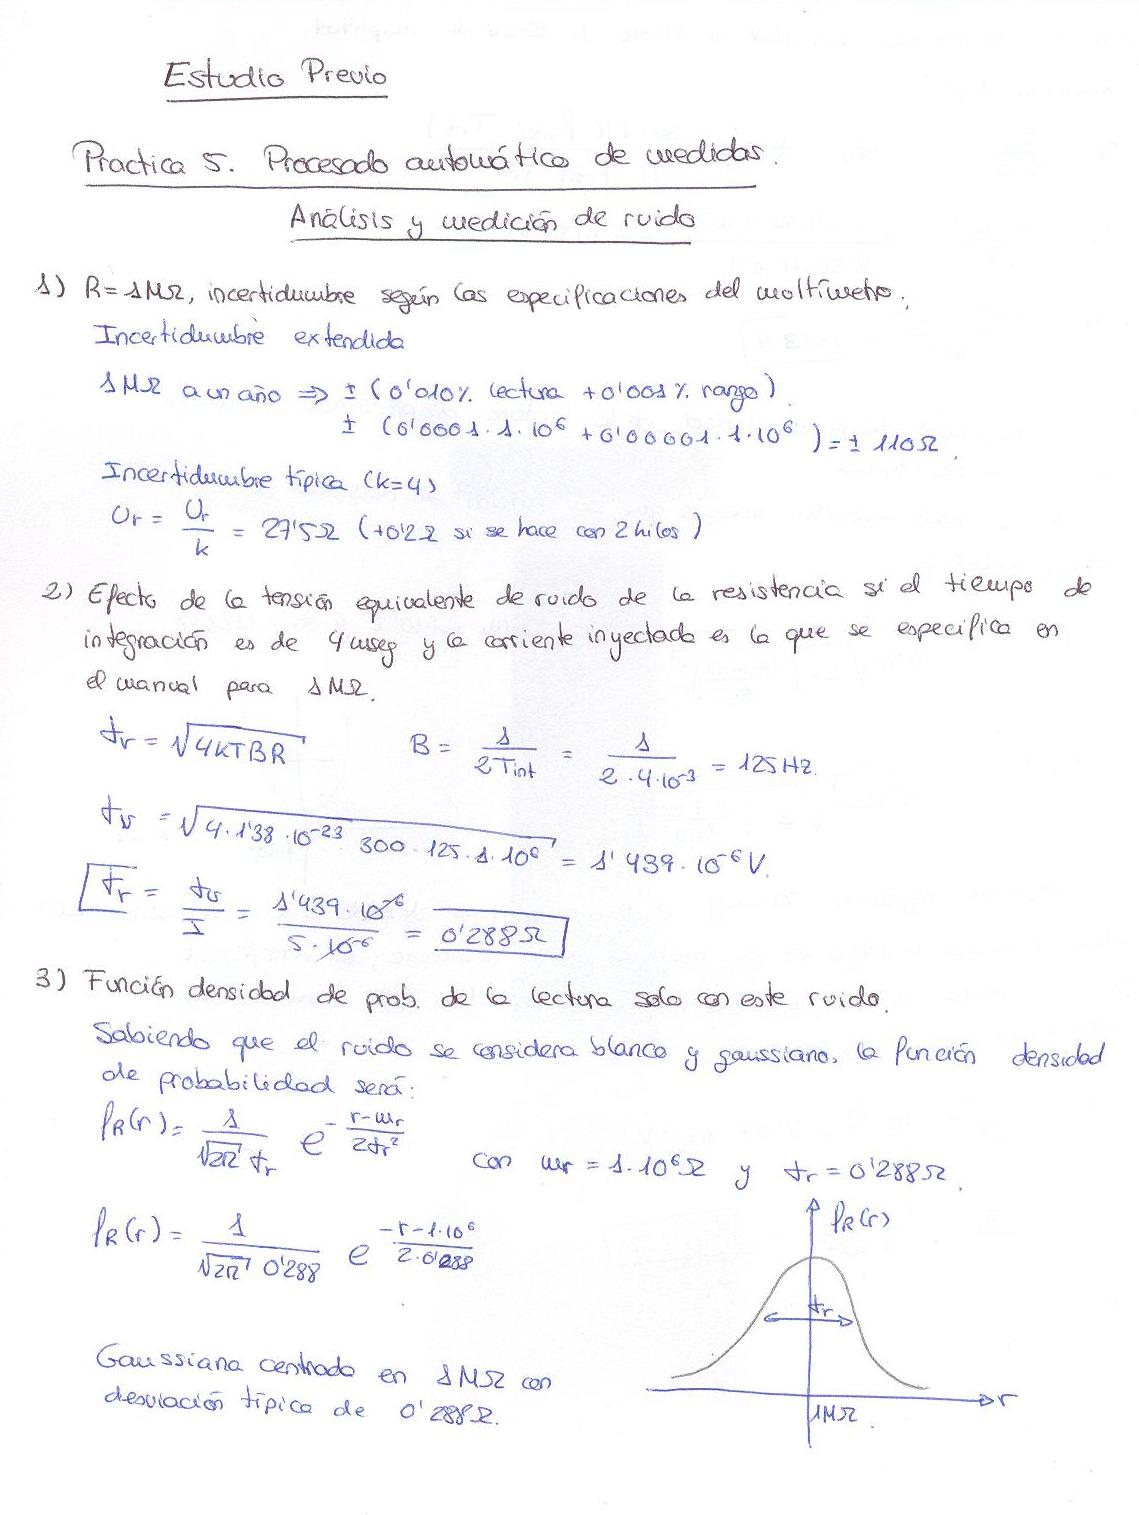 Estudio Previo
Practica 5. Procesado automático de medidas.
Análisis y medición de ruido
1) R = 1MΩ, incertidumbre según las especificaciones del moltímetro.
Incertidumbre extendida
1MΩ a un año => ± (0'010% lectura + 0'001% rango)
± (0'0001·1·10⁶ + 0'00001·1·10⁶) = ± 110Ω.
Incertidumbre típica (k=4)
Ur = Ur/k = 27'5Ω (+0'2Ω si se hace con 2 hilos)
2) Efecto de la tensión equivalente de ruido de la resistencia si el tiempo de
integración es de 4 mseg y la corriente inyectada es la que se especifica en
el manual para 1MΩ.
σr = √4KTBR B = 1/2Tint = 1/2·4·10⁻³ = 125Hz.
σv = √4·1'38·10⁻²³ 300·125·1·10⁶ = 1'439·10⁻⁶V.
σr = σv/I = 1'439·10⁻⁶/5·10⁻⁶ = 0'288Ω
3) Función densidad de prob. de la lectura solo con este ruido.
Sabiendo que el ruido se considera blanco y gaussiano, la función densidad
de probabilidad será:
fR(r) = 1/√2π σr e^-(r-mr/2σr²) con mr = 1·10⁶Ω y σr = 0'288Ω.
fR(r) = 1/√2π 0'288 e^(-r-1·10⁶/2·0'288)
fR(r)
σr
Gaussiana centrada en 1MΩ con
desviación típica de 0'288Ω.
r
1MΩ.